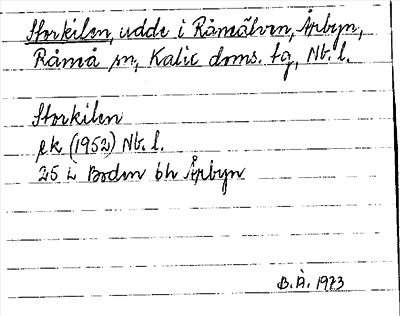 Storkilen, udde i Råneälven, Årbyn,
Råneå sn, Kalix doms. tg, Nb. l.
Storkilen
ek (1952) Nb. l.
25 i Boden bh Årbyn
B. Å. 1973